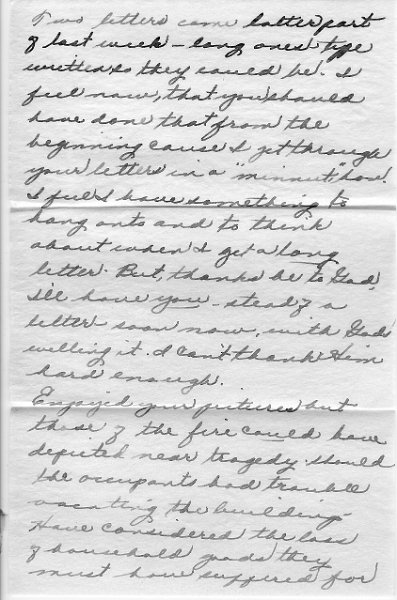 Two letters came latter part
of last week - long ones type
written so they could be. I
feel now, that you should
have done that from the
beginning cause I get through
your letters in a "minnut" now.
I feel I have something to
hang onto and to think
about when I get a long
letter. But, thanks be to God,
I'll have you - stead of a
letter soon now, with God's
willing it. I can't thank Him
hard enough.
Enjoyed your pictures but
those of the fire could have
depicted near tragedy should
the occupants had trouble
vacating the building.
Have considered the loss
of household goods they
must have suffered for